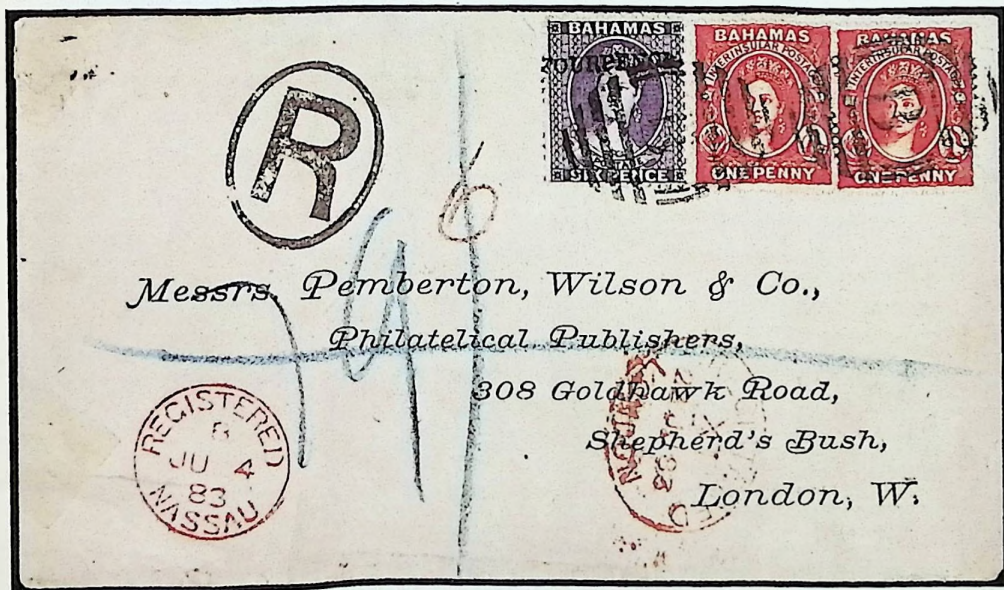 BAHAMAS
FOURPENCE
SIX PENCE
BAHAMAS
INTERINSULAR POSTAGE
ONE PENNY
BAHAMAS
INTERINSULAR POSTAGE
ONE PENNY
R
6
Messrs. Pemberton, Wilson & Co.,
Philatelical Publishers,
308 Goldhawk Road,
Shepherd's Bush,
London, W.
REGISTERED
B
JU 4
83
NASSAU